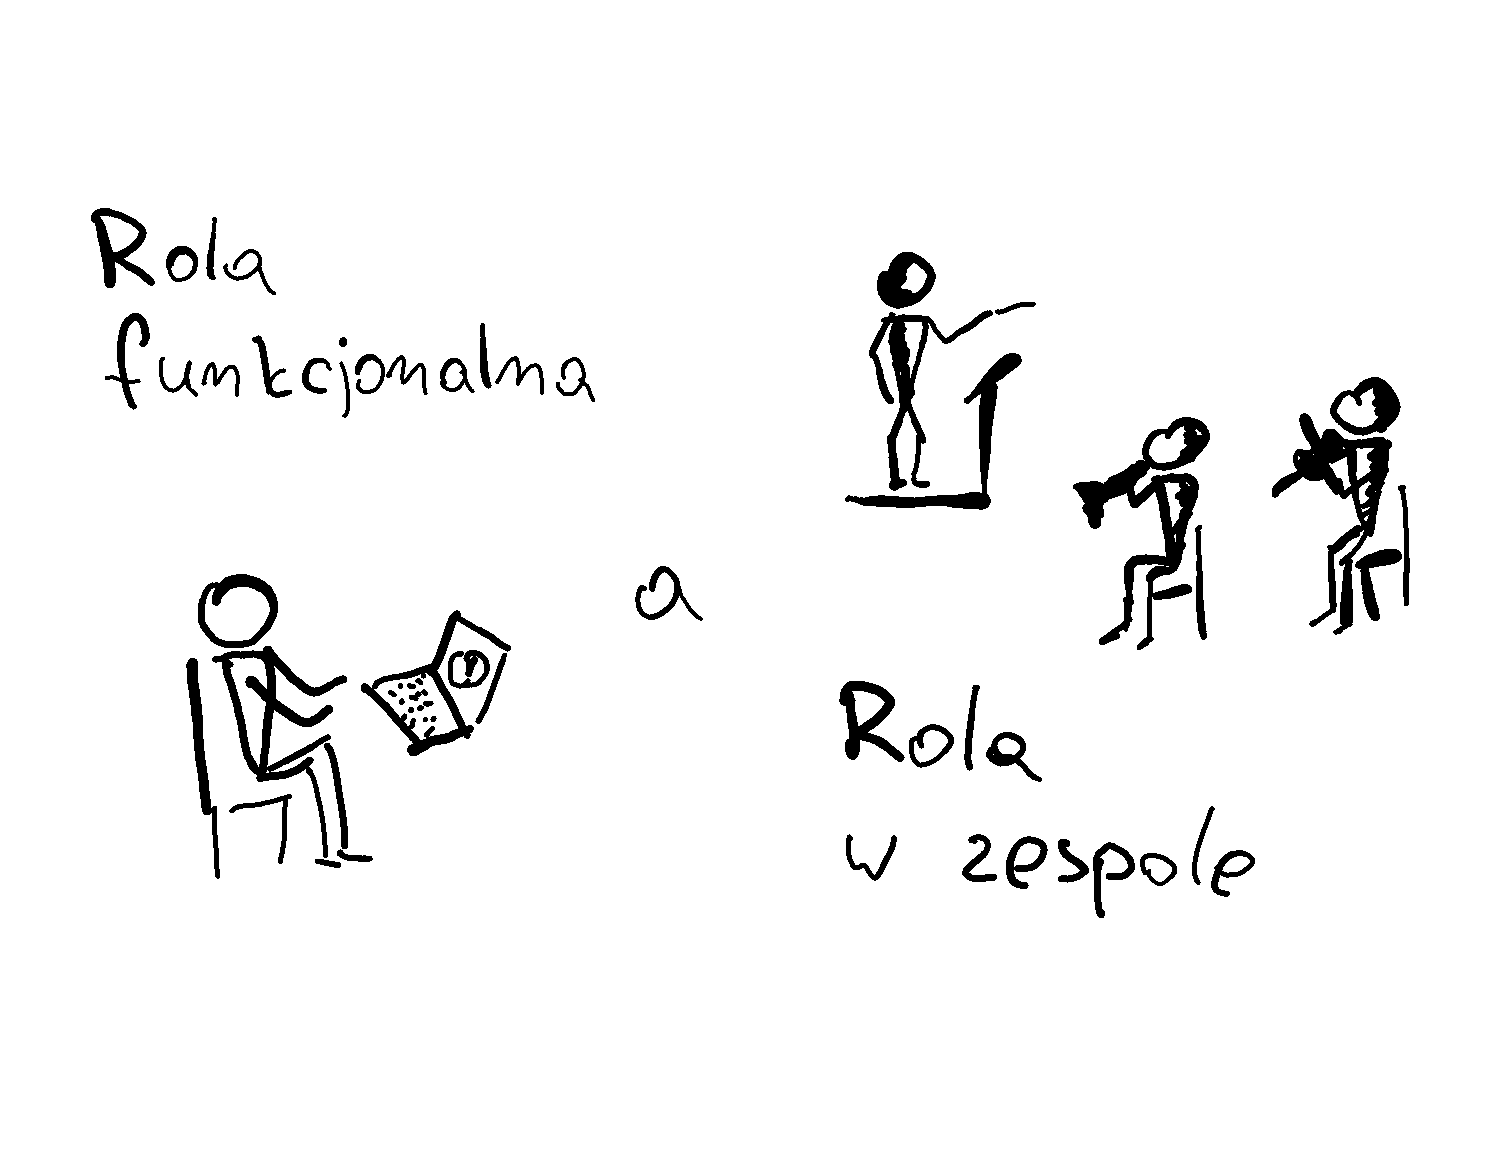 Rola
funkcjonalna
a
Rola
w zespole